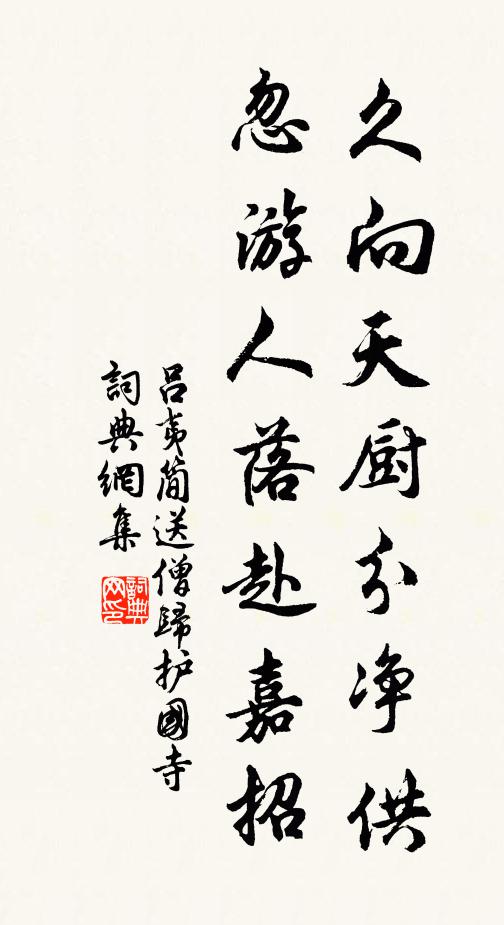 久向天厨分净供
忽游人落赴嘉招
吕夷简送僧歸护國寺
詞典網集
詞典网印